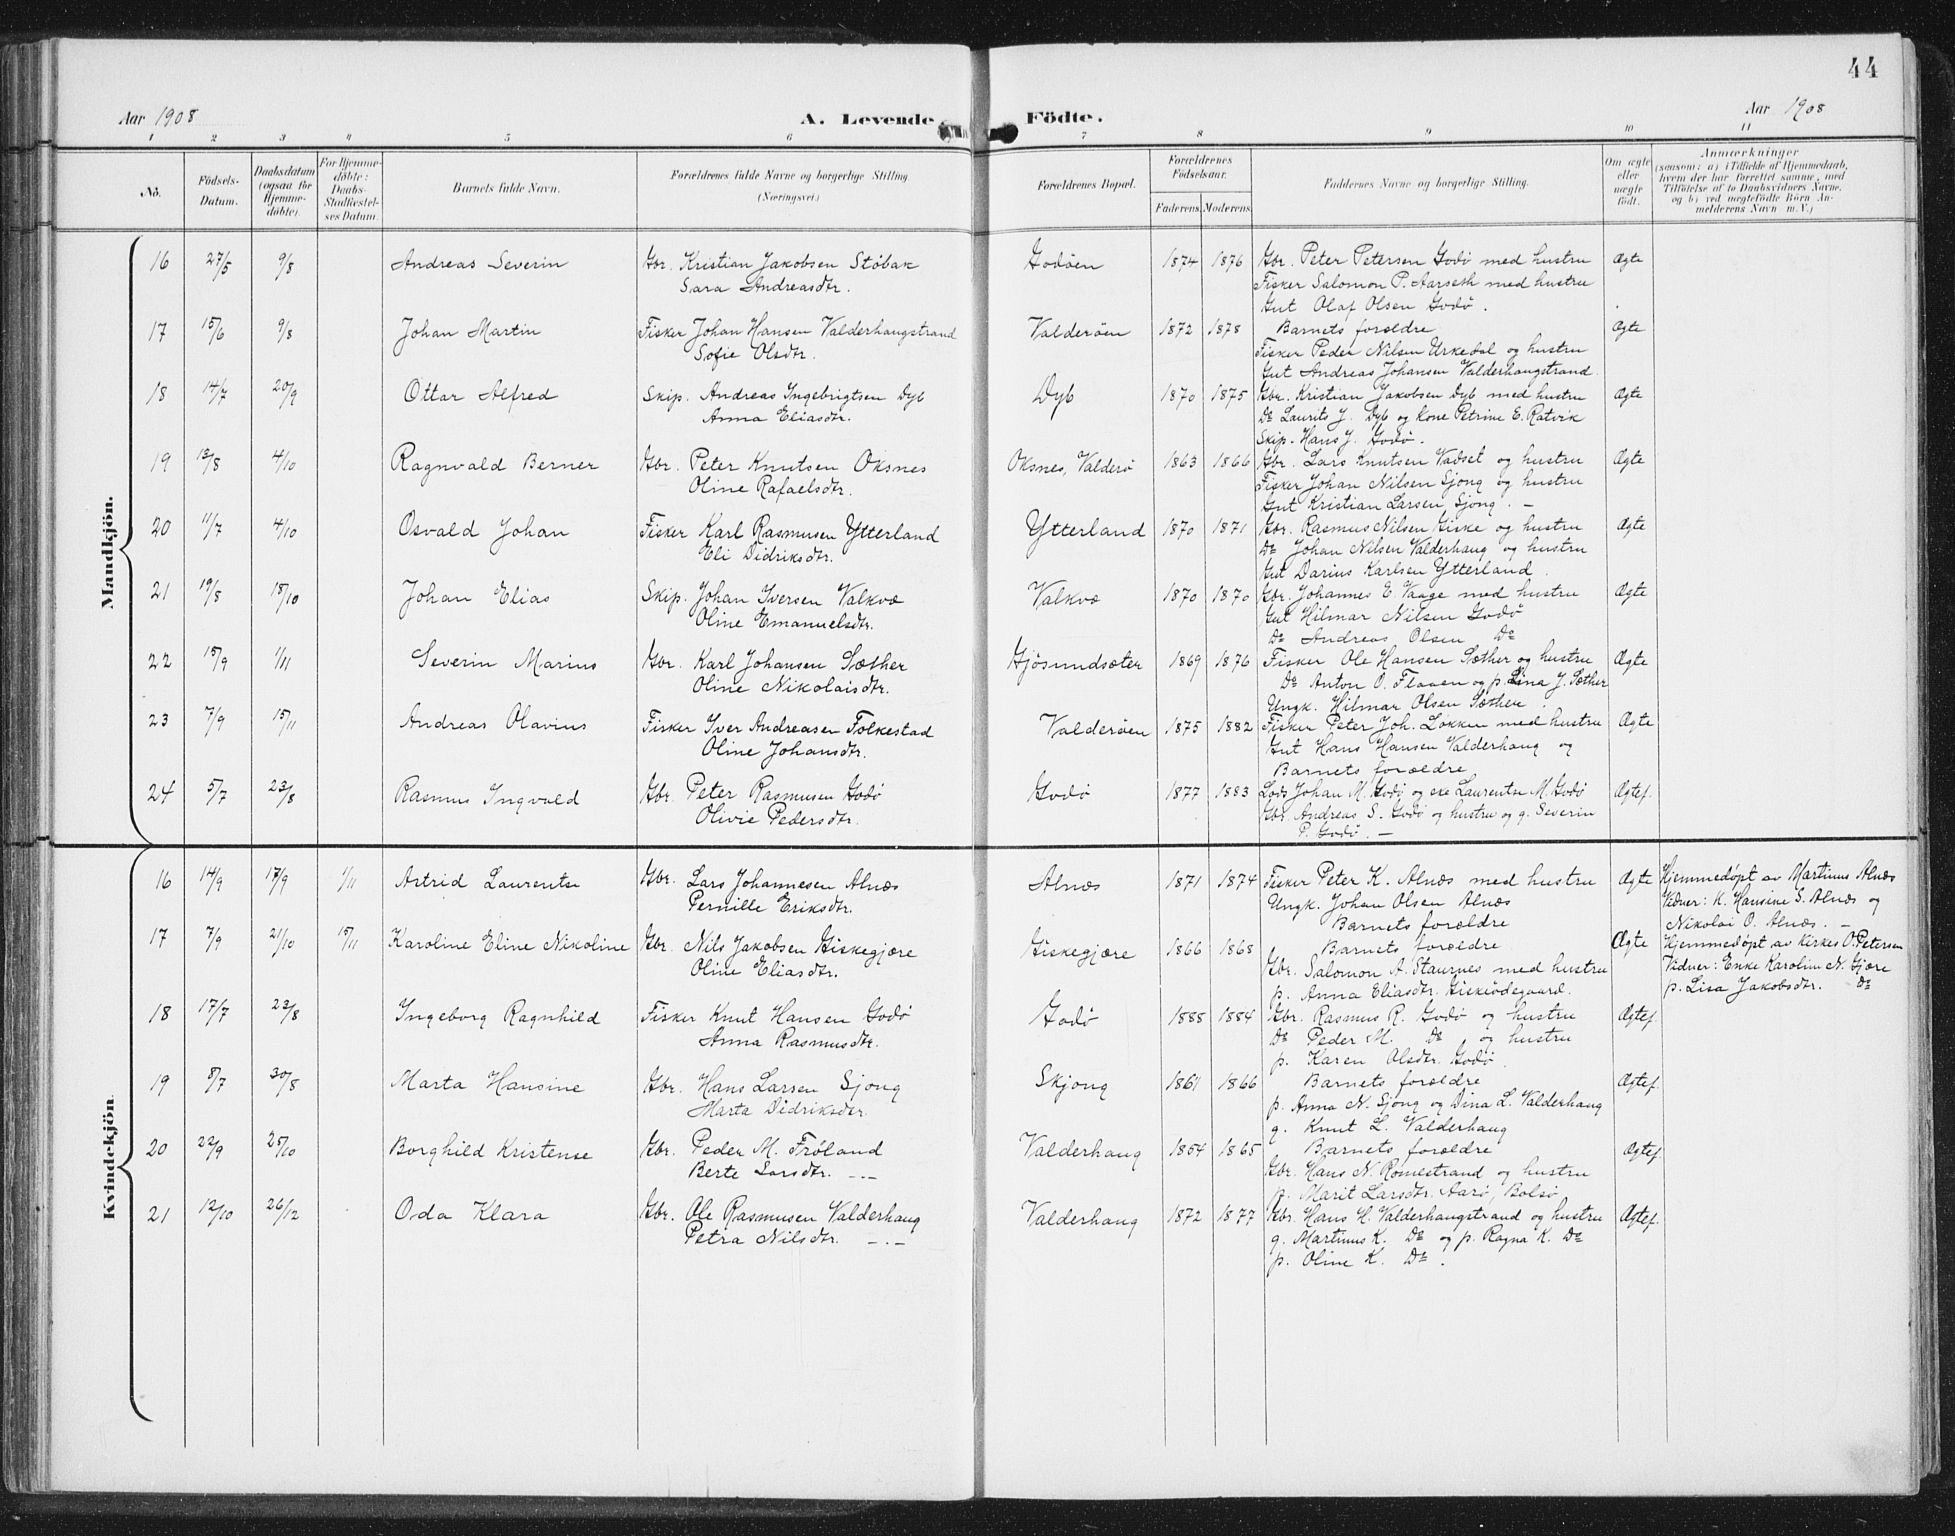 44
Aar 1908 A. Levende Födte. Aar 1908
1 2 3 4 5 6 7 8 9 10 11
No. Födsels-Datum. Daabsdatum (ogsaa for Hjemmedöbte). For Hjemmedöbte: Daabs-Stadfæstelses Datum. Barnets fulde Navn. Forældrenes fulde Navne og borgerlige Stilling. (Næringsvei.) Forældrenes Bopæl. Forældrenes Födselsaar. Faderens. Moderens. Faddernes Navne og borgerlige Stilling. Om ægte eller uægte födt. Anmærkninger (saasom: a) i Tilfælde af Hjemmedaab, hvem der har forrettet samme, med Tilföielse af to Daabsvidners Navne, og b) ved uægtefödte Börn Anmelderens Navn m. V.)
Mandkjön.
16 27/5 9/8 Andreas Severin Gbr. Kristian Jakobsen Stöbak Godöen 1874 1876 Gbr. Peter Petersen Godö med hustru Ægte
Sara Andreasdtr. Fisker Salomon P. Aarseth med hustru
Gut Olaf Olsen Godö.
17 15/6 9/8 Johan Martin Fisker Johan Hansen Valderhaugstrand Valderöen 1872 1878 Barnets forældre Ægte
Sofie Olsdtr. Fisker Peder Nilsen Urkedal og hustru
Gut Andreas Johansen Valderhaugstrand
18 14/7 20/9 Ottar Alfred Skip. Andreas Ingebrigtsen Dyb Dyb 1870 1875 Gbr. Kristian Jakobsen Dyb med hustru Ægte
Anna Eliasdtr. Do Laurits J. Dyb og kone Petrine E. Ratvik
Skip. Hans J. Godö.
19 13/8 4/10 Ragnvald Berner Gbr. Peter Knutsen Oksnes Oksnes, Valderö 1863 1866 Gbr. Lars Knutsen Vadset og hustru Ægte
Oline Rafaelsdtr. Fisker Johan Nilsen Sjong og hustru
Gut Kristian Larsen Sjong. –
20 11/7 4/10 Osvald Johan Fisker Karl Rasmusen Ytterland Ytterland 1870 1871 Gbr. Rasmus Nilsen Giske og hustru Ægte
Eli Didriksdtr. Do Johan Nilsen Valderhaug og hustru
Gut Darius Karlsen Ytterland.
21 19/8 18/10 Johan Elias Skip. Johan Iversen Valkvæ Valkvæ 1870 1870 Gbr. Johannes E. Vaage med hustru Ægte
Oline Emanuelsdtr. Gut Hilmar Nilsen Godö
Do Andreas Olsen Do
22 15/9 1/11 Severin Marius Gbr. Karl Johansen Sæther Gjösundsæter 1869 1876 Fisker Ole Hansen Sæther og hustru Ægte
Oline Nikolaisdtr. Do Anton O. Flaaen og p. Lina J. Sæther
Ungk. Hilmar Olsen Sæther.
23 7/9 15/11 Andreas Olavius Fisker Iver Andreasen Folkestad Valderöen 1875 1882 Fisker Peter Joh. Løkken med hustru Ægte
Oline Johansdtr. Gut Hans Hansen Valderhaug og
Barnets forældre
24 5/7 23/8 Rasmus Ingvald Gbr. Peter Rasmusen Godö Godö 1877 1883 Lods Johan M. Godö og Laurentse M. Godö Ægtef.
Olivie Pedersdtr. Gbr. Andreas S. Godö og hustru og g. Severin
P. Godö. –
Kvindekjön.
16 14/9 17/9 1/11 Astrid Laurentse Gbr. Lars Johannesen Alnæs Alnæs 1871 1874 Fisker Peter K. Alnæs med hustru Ægte Hjemmedøpt av Martinus Alnæs
Pernille Eriksdtr. Ungk. Johan Olsen Alnæs Vidner: K. Hansine S. Alnæs og
Barnets forældre Nikolai O. Alnæs. –
17 7/9 21/10 15/11 Karoline Eline Nikoline Gbr. Nils Jakobsen Giskegjære Giskegjære 1866 1868 Barnets forældre Ægte Hjemmedøpt av Kirkes. O. Petersen
Oline Eliasdtr. Gbr. Salomon A. Staurnes med hustru Vidner: Enke Karoline N. Gjære
p. Anna Eliasdtr. Giskeödegaard. p. Lisa Jakobsdtr. Do
18 17/7 23/8 Ingeborg Ragnhild Fisker Knut Hansen Godö Godö 1888 1884 Gbr. Rasmus R. Godö og hustru Ægtef.
Anna Rasmusdtr. Do Peder M. Do og hustru
p. Karen Olsdtr. Godö.
19 8/7 30/8 Marta Hansine Gbr. Hans Larsen Sjong Skjong 1861 1866 Barnets forældre Ægtef.
Marta Didriksdtr. p. Anna N. Sjong og Dina L. Valderhaug
g. Knut L. Valderhaug
20 22/9 25/10 Borghild Kristense Gbr. Peder M. Fröland Valderhaug 1854 1865 Barnets forældre Ægtef.
Berte Larsdtr. –.– Gbr. Hans N. Romestrand og hustru
p. Marit Larsdtr. Aarö, Bolsö
21 12/10 26/12 Oda Klara Gbr. Ole Rasmusen Valderhaug Valderhaug 1872 1877 Gbr. Hans H. Valderhaugstrand og hustru Ægtef.
Petra Nilsdtr. –.– g. Martinus K. Do og p. Ragna K. Do
p. Oline K. Do.